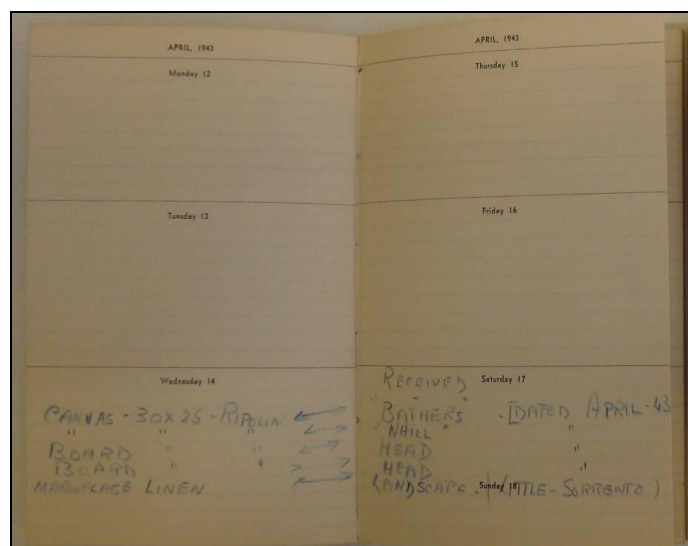 APRIL, 1943
Monday 12
Tuesday 13
Wednesday 14
CANVAS - 30 X 25 - RIPOLIN
" " "
BOARD " "
BOARD
MAROUFLAGE LINEN
APRIL, 1943
Thursday 15
Friday 16
Saturday 17
RECEIVED
"BATHERS" - [DATED APRIL-43
"NHILL" "
HEAD "
HEAD "
Sunday 18
LANDSCAPE - (TITLE - SORRENTO)